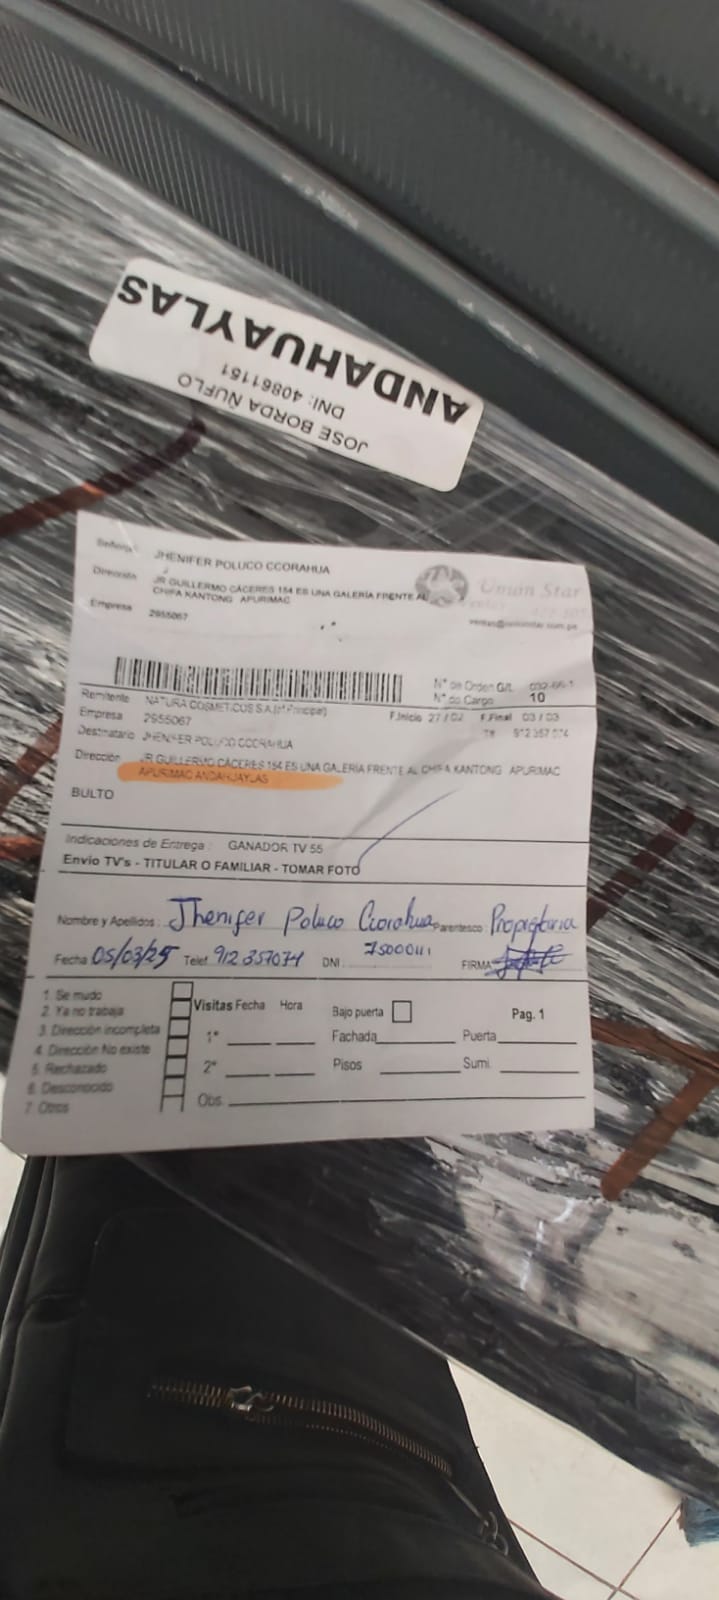 ANDAHUAYLAS
DNI: 40861151
JOSE BORDA ÑUFLO
Señor(a): JHENIFER POLUCO CCORAHUA
Dirección JR GUILLERMO CÁCERES 154 ES UNA GALERÍA FRENTE AL
CHIFA KANTONG APURIMAC
Empresa 2955067
Umán Star
N° de Orden G/t.
N° de Cargo 10
Remitente NATURA COSMETICOS S.A.
Empresa 2955067
F.Inicio 27 / 02 F.Final 03 / 03
Destinatario JHENIFER POLUCO CCORAHUA
Dirección JR GUILLERMO CÁCERES 154 ES UNA GALERÍA FRENTE AL CHIFA KANTONG APURIMAC
APURIMAC ANDAHUAYLAS
BULTO
Indicaciones de Entrega : GANADOR TV 55
Envío TV's - TITULAR O FAMILIAR - TOMAR FOTO
Nombre y Apellidos : Jhenifer Poluco Ccorahua Parentesco : Propietaria
Fecha 05/03/25 Telef. 912 357074 DNI 75000111 FIRMA
1. Se mudo
2. Ya no trabaja
3. Dirección incompleta
4. Dirección No existe
5. Rechazado
6. Desconocido
7. Otros
Visitas Fecha Hora
1°
2°
Obs.
Bajo puerta
Fachada
Pisos
Pag. 1
Puerta
Sumi.